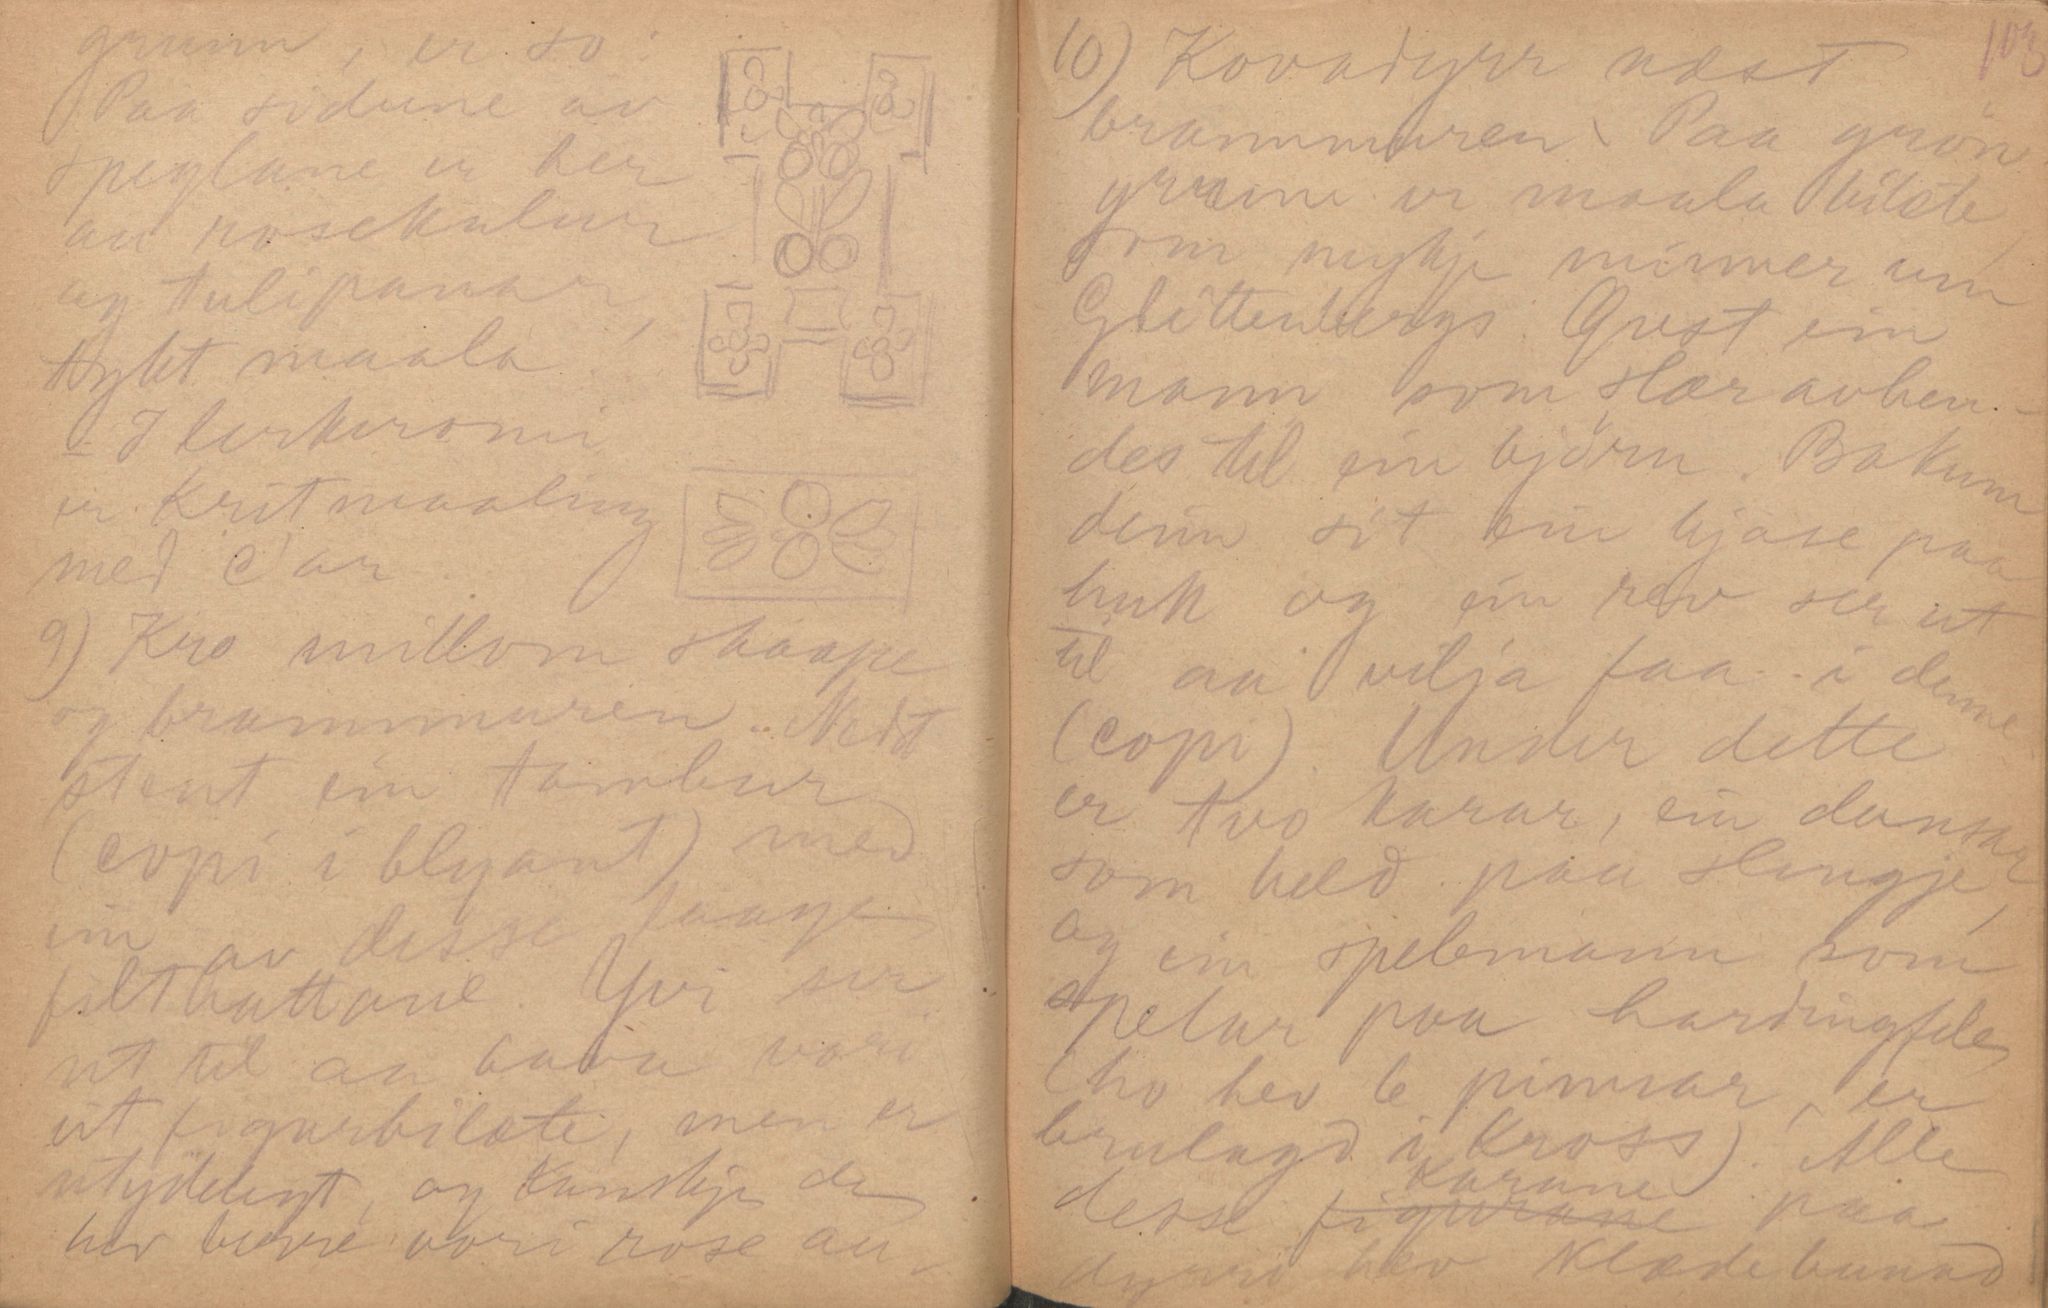 grunn, er so:
Paa sidune av
speglane er her
au rosekulur
og tulipanar,
tykt maala.
- I
er kritmaaling
med C'ar.
9) Kro millom skaape
og brammuren. Nedst
stent ein tambur
(copi i blyant) med
ein av desse haage
filthattane. Yvi ser
ut til aa hava vori
eit figurbilæte, men er
utydelegt, og kanskje da
hev berre vori rose au.
103
10) Kovadyrr næst
brammuren. Paa grøn
grunn er maala bilæte,
som mykje minner um
Glittenbergs. Øvst ein
mann som slær avhen-
des til ein björn. Bakum
denn sit ein bjase paa
huk og ein rev ser ut
til aa vilja faa i denne
(copi). Under dette
er two karar, ein dansar
som held paa slengje,
og ein spelemann som
spelar paa hardingfele
(ho hev 6 pinnar, er
brulagd i kross). Alle
desse figurane karane paa
dyrri hev klædebunad